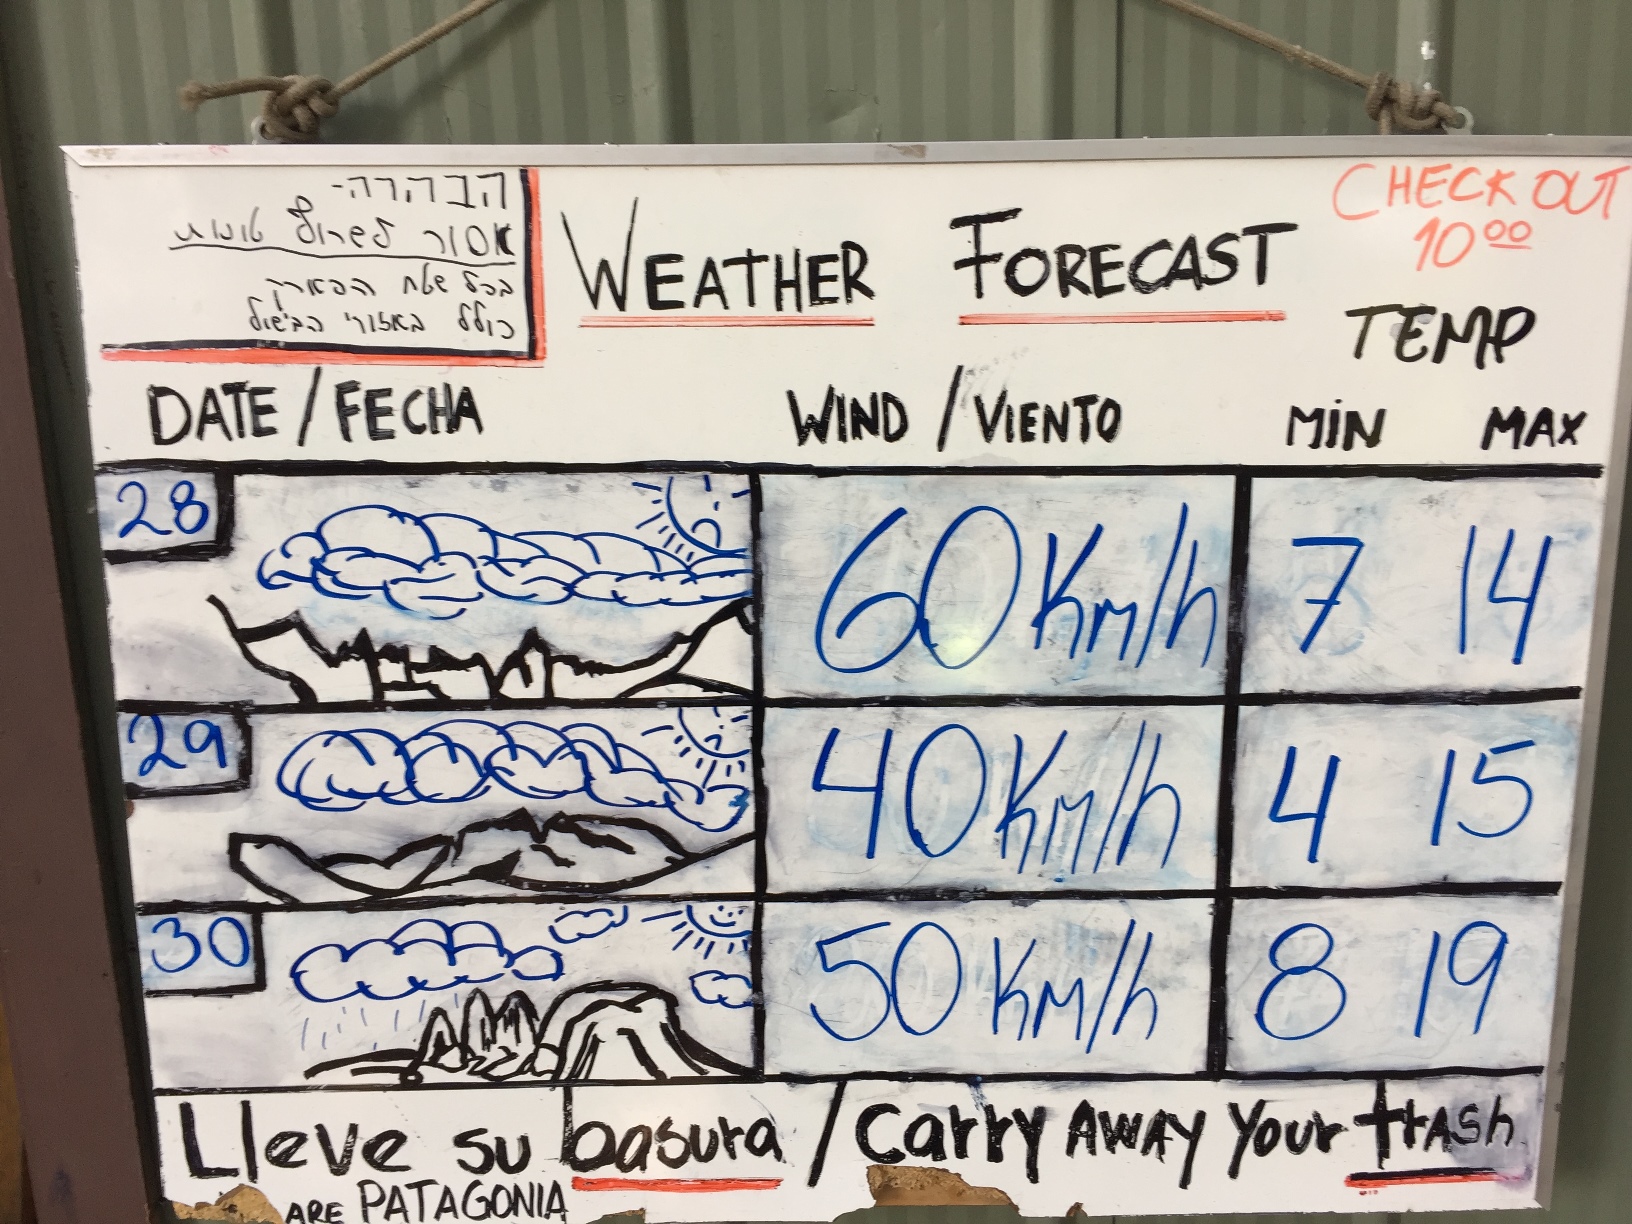 הבהרה-
אסור לשרוף טונות
בכל שטח הפארק
כולל באזורי הבישול
WEATHER FORECAST
CHECK OUT
10⁰⁰
TEMP
DATE / FECHA WIND / VIENTO MIN MAX
28 60 Km/h 7 14
29 40 Km/h 4 15
30 50 Km/h 8 19
Lleve su basura / Carry AWAY Your trash
ARE PATAGONIA